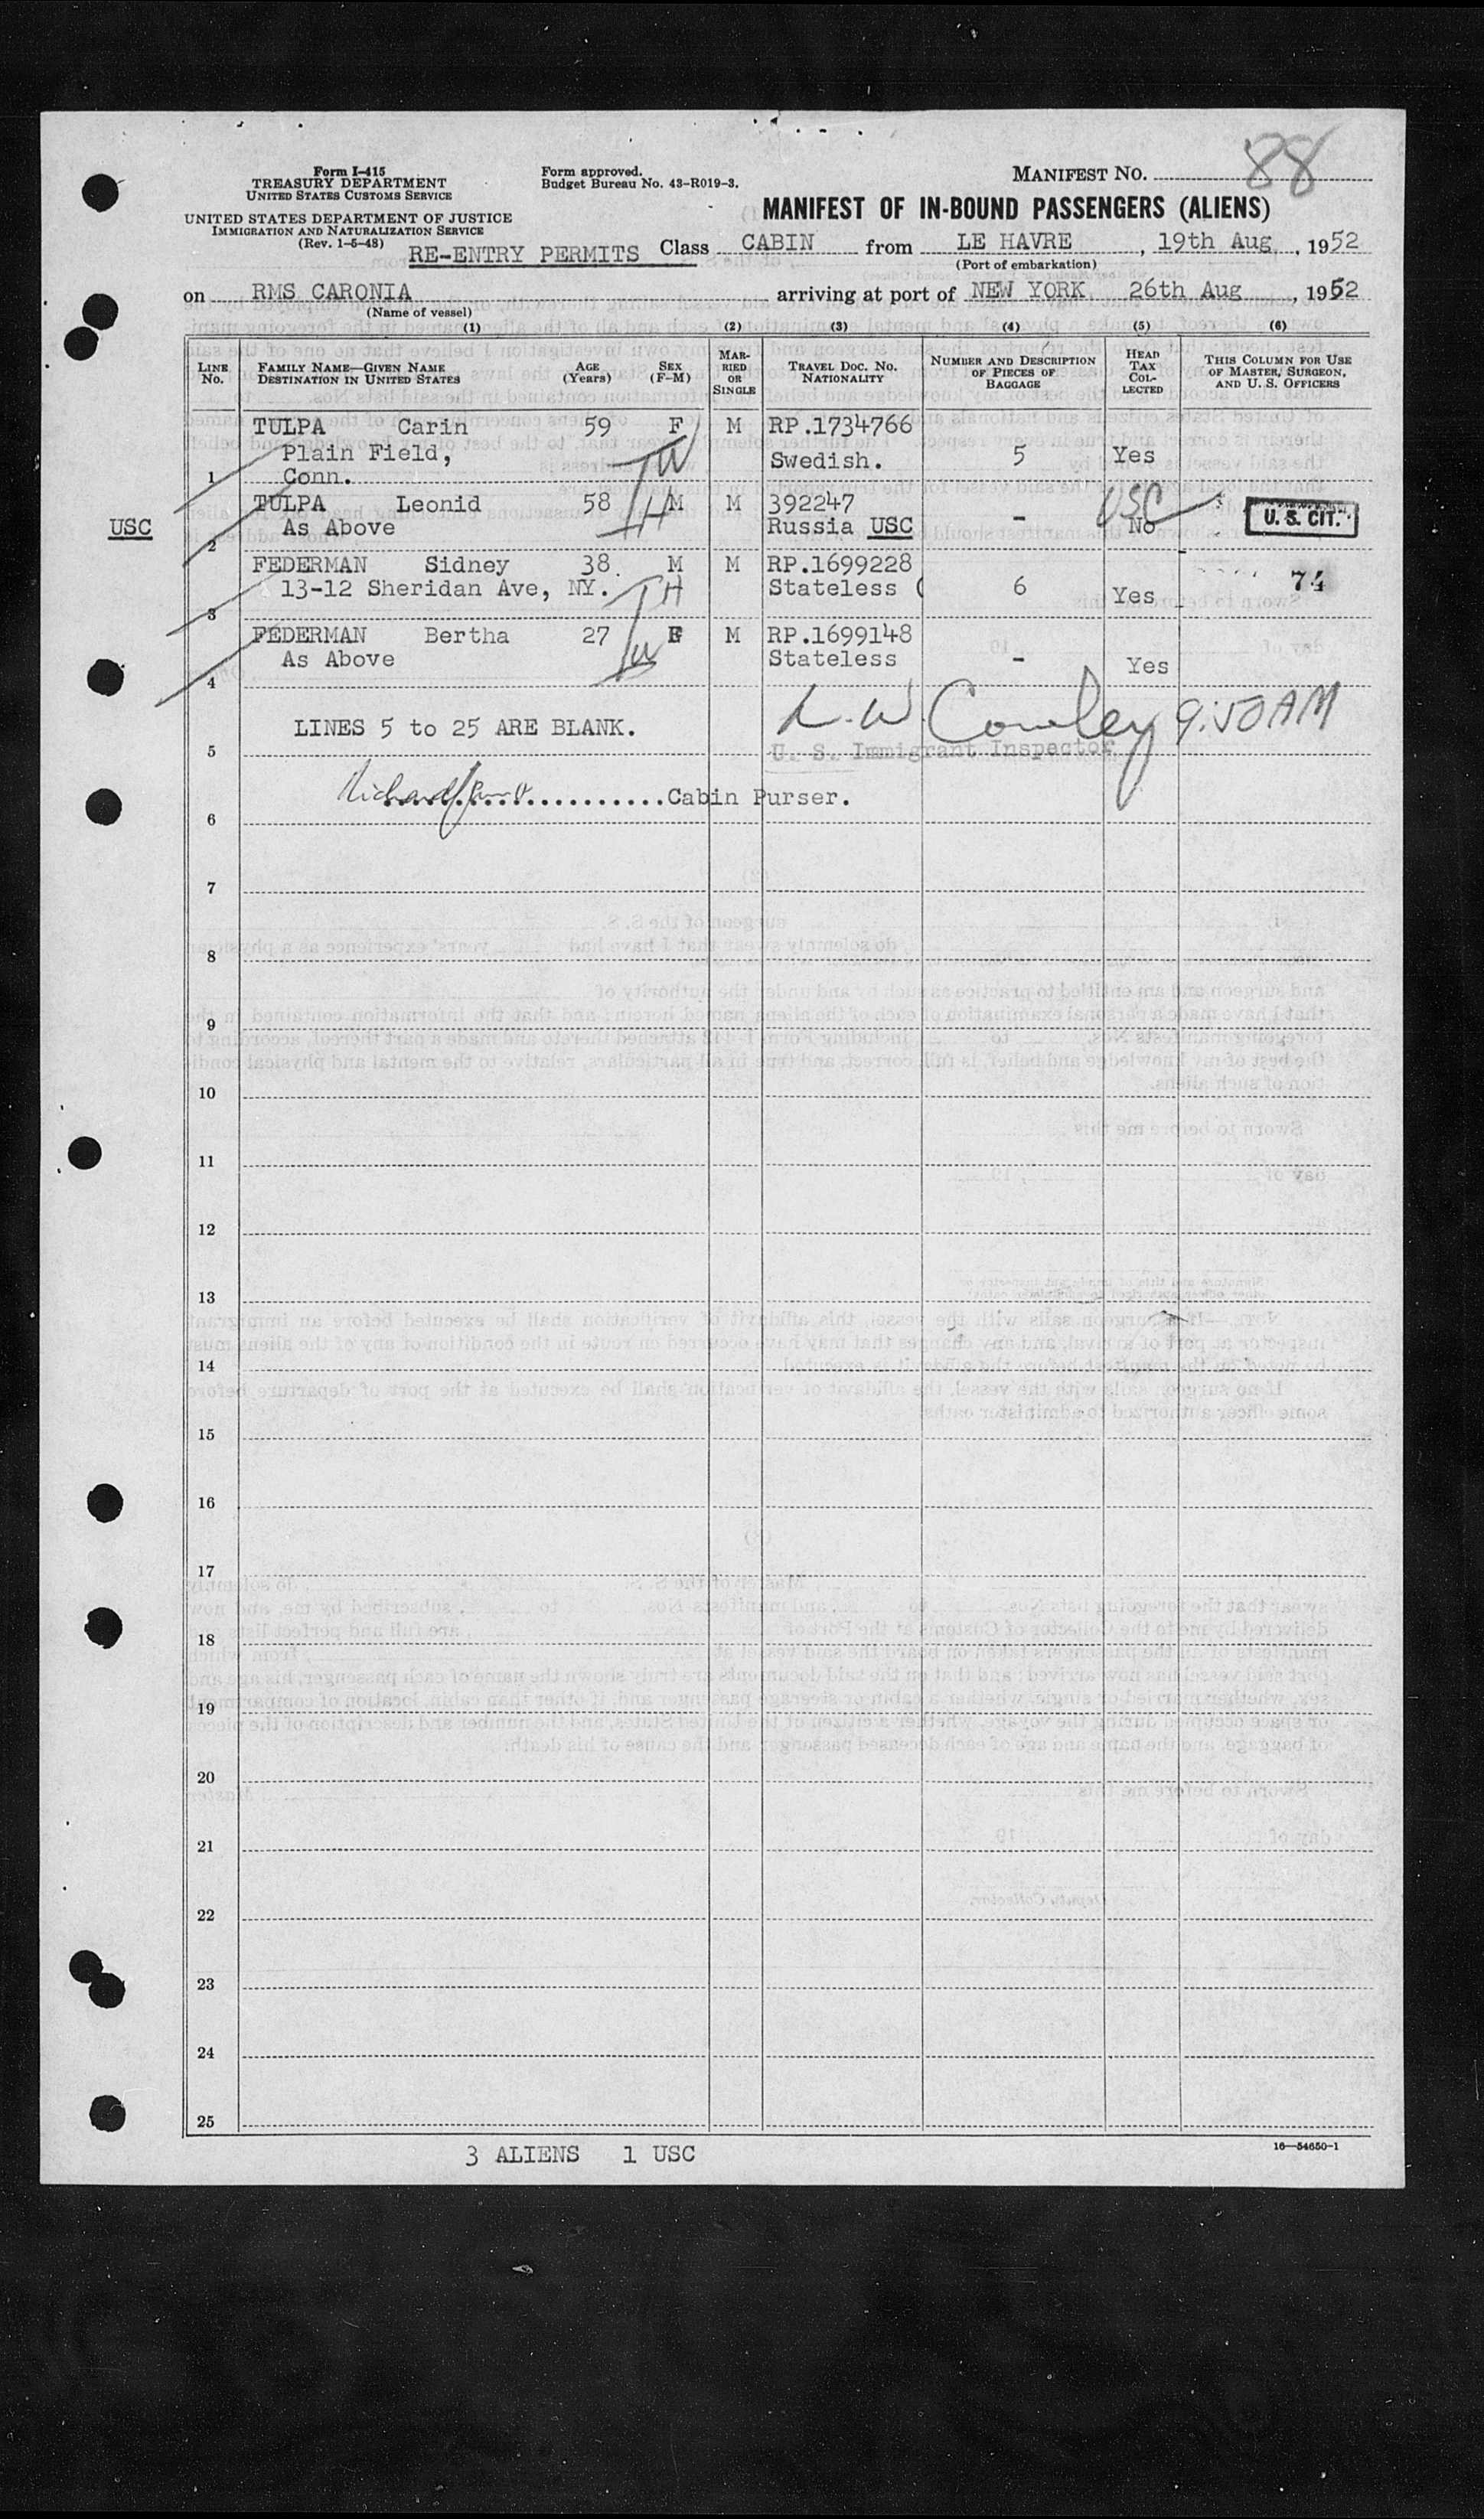 88
Form I-415
TREASURY DEPARTMENT
UNITED STATES CUSTOMS SERVICE
UNITED STATES DEPARTMENT OF JUSTICE
IMMIGRATION AND NATURALIZATION SERVICE
(Rev. 1-5-48)
Form approved.
Budget Bureau No. 43-R019-3.
MANIFEST NO.
MANIFEST OF IN-BOUND PASSENGERS (ALIENS)
RE-ENTRY PERMITS Class CABIN from LE HAVRE, 19th Aug, 1952
(Port of embarkation)
on RMS CARONIA arriving at port of NEW YORK 26th Aug, 1952
(Name of vessel)
(1) (2) (3) (4) (5) (6)
LINE No. FAMILY NAME—GIVEN NAME DESTINATION IN UNITED STATES AGE (Years) SEX (F-M) MARRIED OR SINGLE TRAVEL DOC. NO. NATIONALITY NUMBER AND DESCRIPTION OF PIECES OF BAGGAGE HEAD TAX COLLECTED THIS COLUMN FOR USE OF MASTER, SURGEON, AND U. S. OFFICERS
TULPA Carin 59 F M RP.1734766
Plain Field, TW Swedish. 5 Yes
1 Conn.
TULPA Leonid 58 M M 392247 USC
USC As Above TH Russia USC - No U. S. CIT.
2
FEDERMAN Sidney 38. M M RP.1699228
13-12 Sheridan Ave, NY. TH Stateless ( 6 Yes 74
3
FEDERMAN Bertha 27 F M RP.1699148
As Above TW Stateless - Yes
4
LINES 5 to 25 ARE BLANK. L. W. Cowley 9:50 AM
5 U. S. Immigrant Inspector
Cabin Purser.
6
7
8
9
10
11
12
13
14
15
16
17
18
19
20
21
22
23
24
25
3 ALIENS 1 USC
16—54650-1